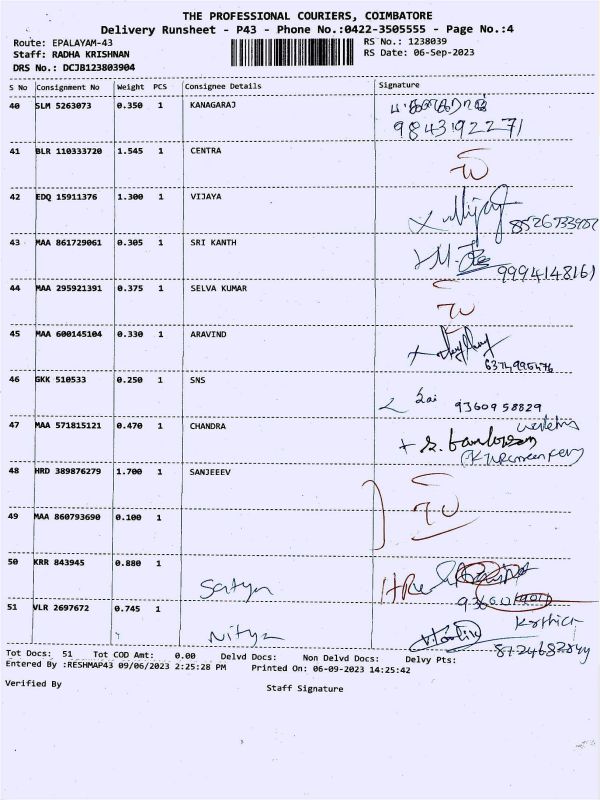 THE PROFESSIONAL COURIERS, COIMBATORE
Delivery Runsheet - P43 - Phone No.:0422-3505555 - Page No.:4
Route: EPALAYAM-43
RS No.: 1238039
Staff: RADHA KRISHNAN
RS Date: 06-Sep-2023
DRS No.: DCJB123803904
S No Consignment No Weight PCS Consignee Details Signature
40 SLM 5263073 0.350 1 KANAGARAJ
9843192271
41 BLR 110333720 1.545 1 CENTRA
42 EDQ 15911376 1.300 1 VIJAYA
43 MAA 861729061 0.305 1 SRI KANTH
9994148161
44 MAA 295921391 0.375 1 SELVA KUMAR
45 MAA 600145104 0.330 1 ARAVIND
46 GKK 510533 0.250 1 SNS
Sai 9360958829
47 MAA 571815121 0.470 1 CHANDRA
48 HRD 389876279 1.700 1 SANJEEEV
49 MAA 860793690 0.100 1
50 KRR 843945 0.880 1
Satya
51 VLR 2697672 0.745 1
Nitya
Tot Docs: 51 Tot COD Amt: 0.00 Delvd Docs: Non Delvd Docs: Delvy Pts:
Entered By :RESHMAP43 09/06/2023 2:25:28 PM Printed On: 06-09-2023 14:25:42
Verified By
Staff Signature